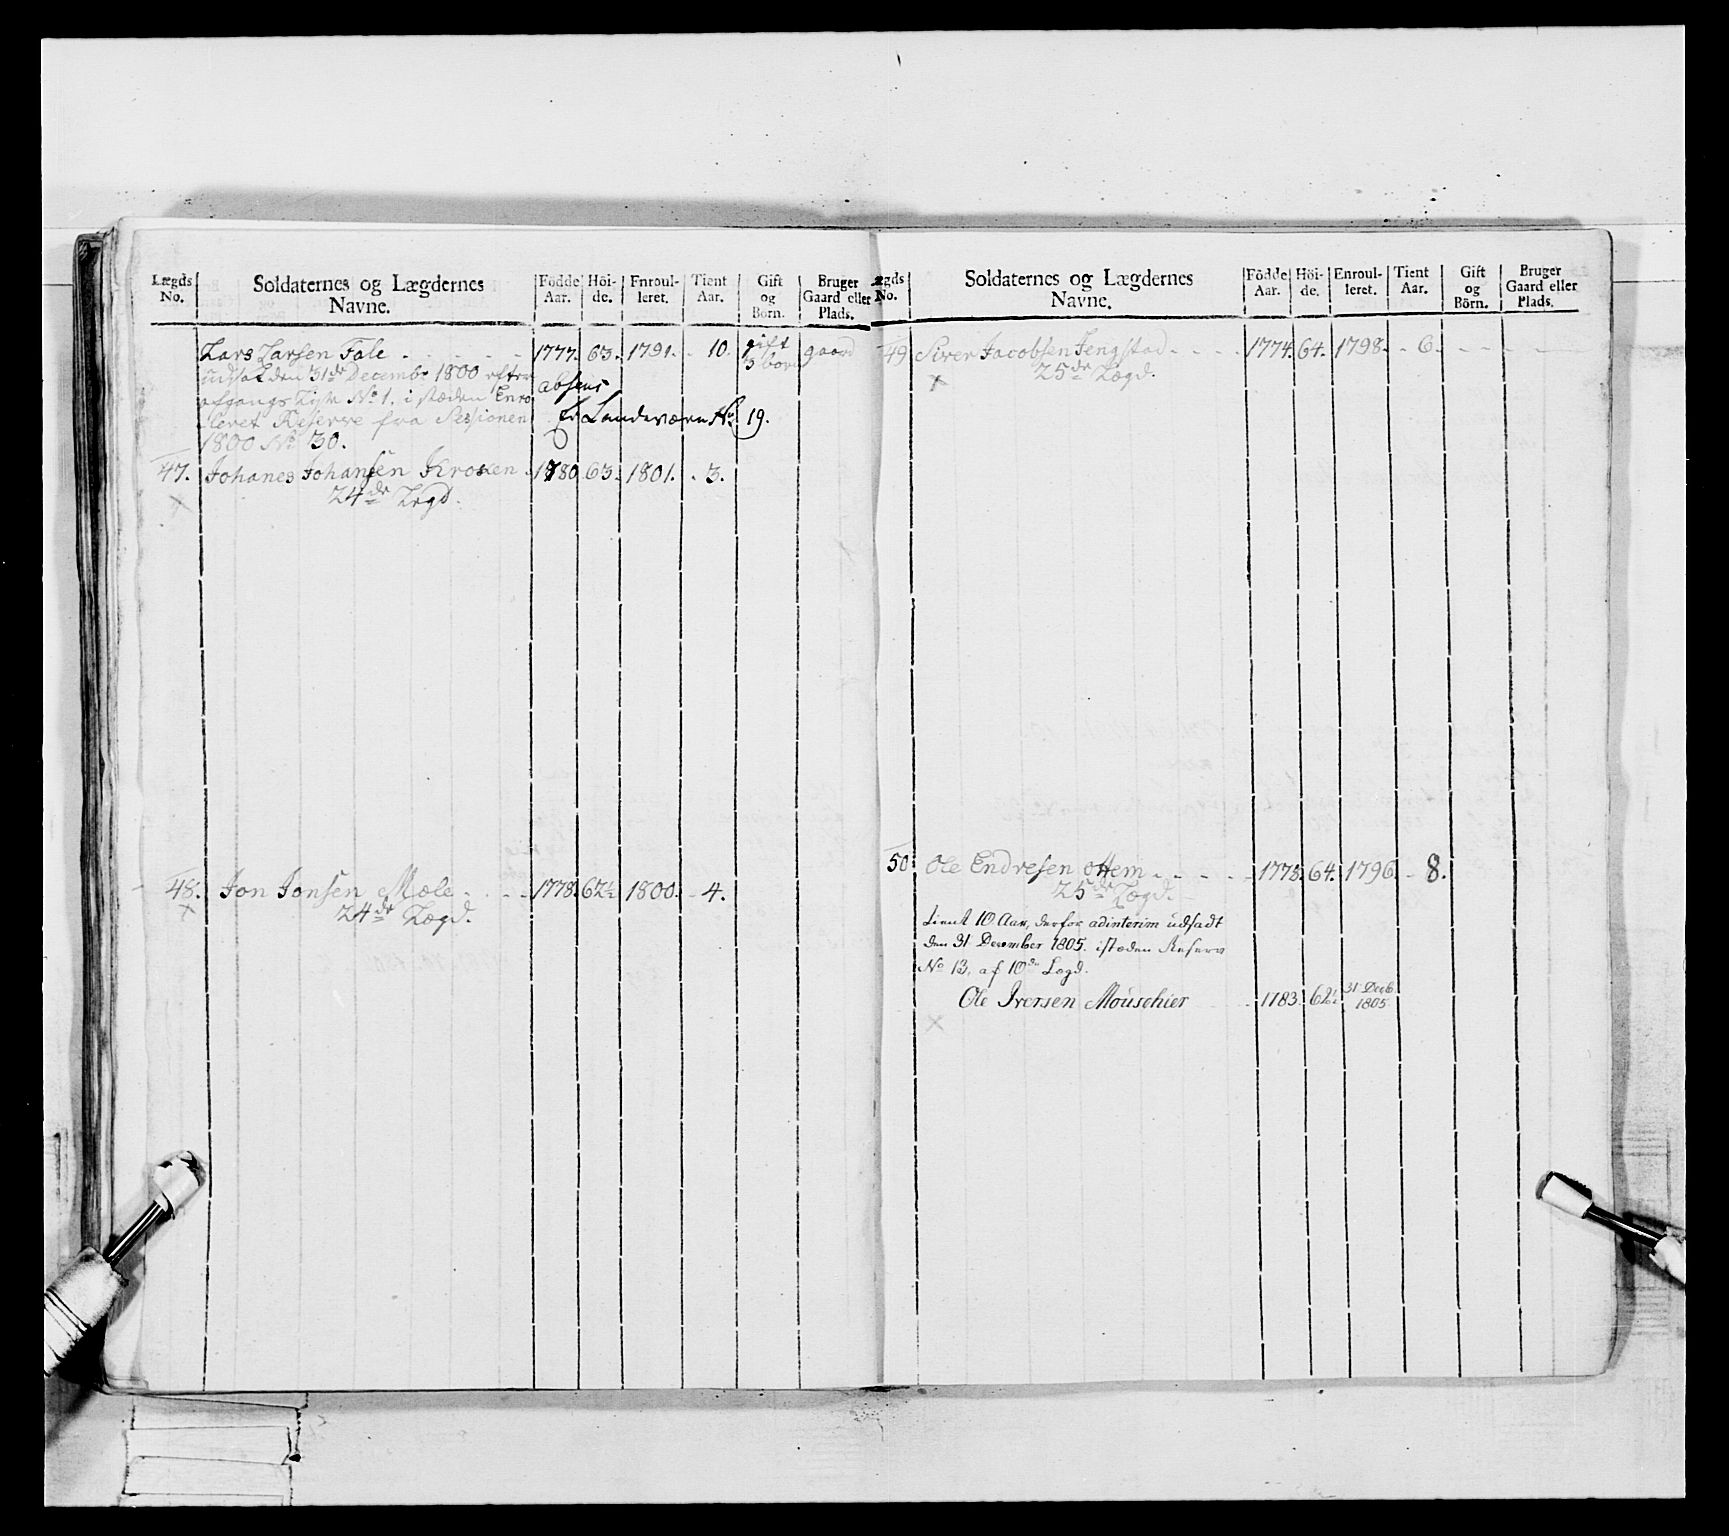 Lægds No. Soldaternes og Lægdernes Navne. Födde Aar. Höi-de. Enroul-leret. Tient Aar. Gift og Börn. Bruger Gaard eller Plads.
Lars Larsen Fale 1777. 63. 1791. 10. gift 3 børn gaard
udsat den 31de Decembr 1800 efter absens
afgangs Liste No 1. i stæden Enro
lleret Reserve fra Sessionen Er Landeværn No. 19.
1800 No 30.
47. Johanes Johansen Kroken 1780 63. 1801. 3.
24de Legd.
48. Jon Jonsen Mæle 1778. 62½ 1800. 4.
24de Lægd.
Lægds No. Soldaternes og Lægdernes Navne. Födde Aar. Höi-de. Enroul-leret. Tient Aar. Gift og Börn. Bruger Gaard eller Plads.
49 Siver Jacobsen Jengstad 1774. 64. 1798. 6.
25de Lægd.
50. Ole Endresen Ottem 1778. 64. 1796. 8.
25de Lægd.
tient 10 Aar, derfor adinterim udsadt
den 31 December 1805. istæden Reserv
No 13, af 10de Lægd.
Ole Iversen Mouschier 1783. 62½ 31 Decb. 1805